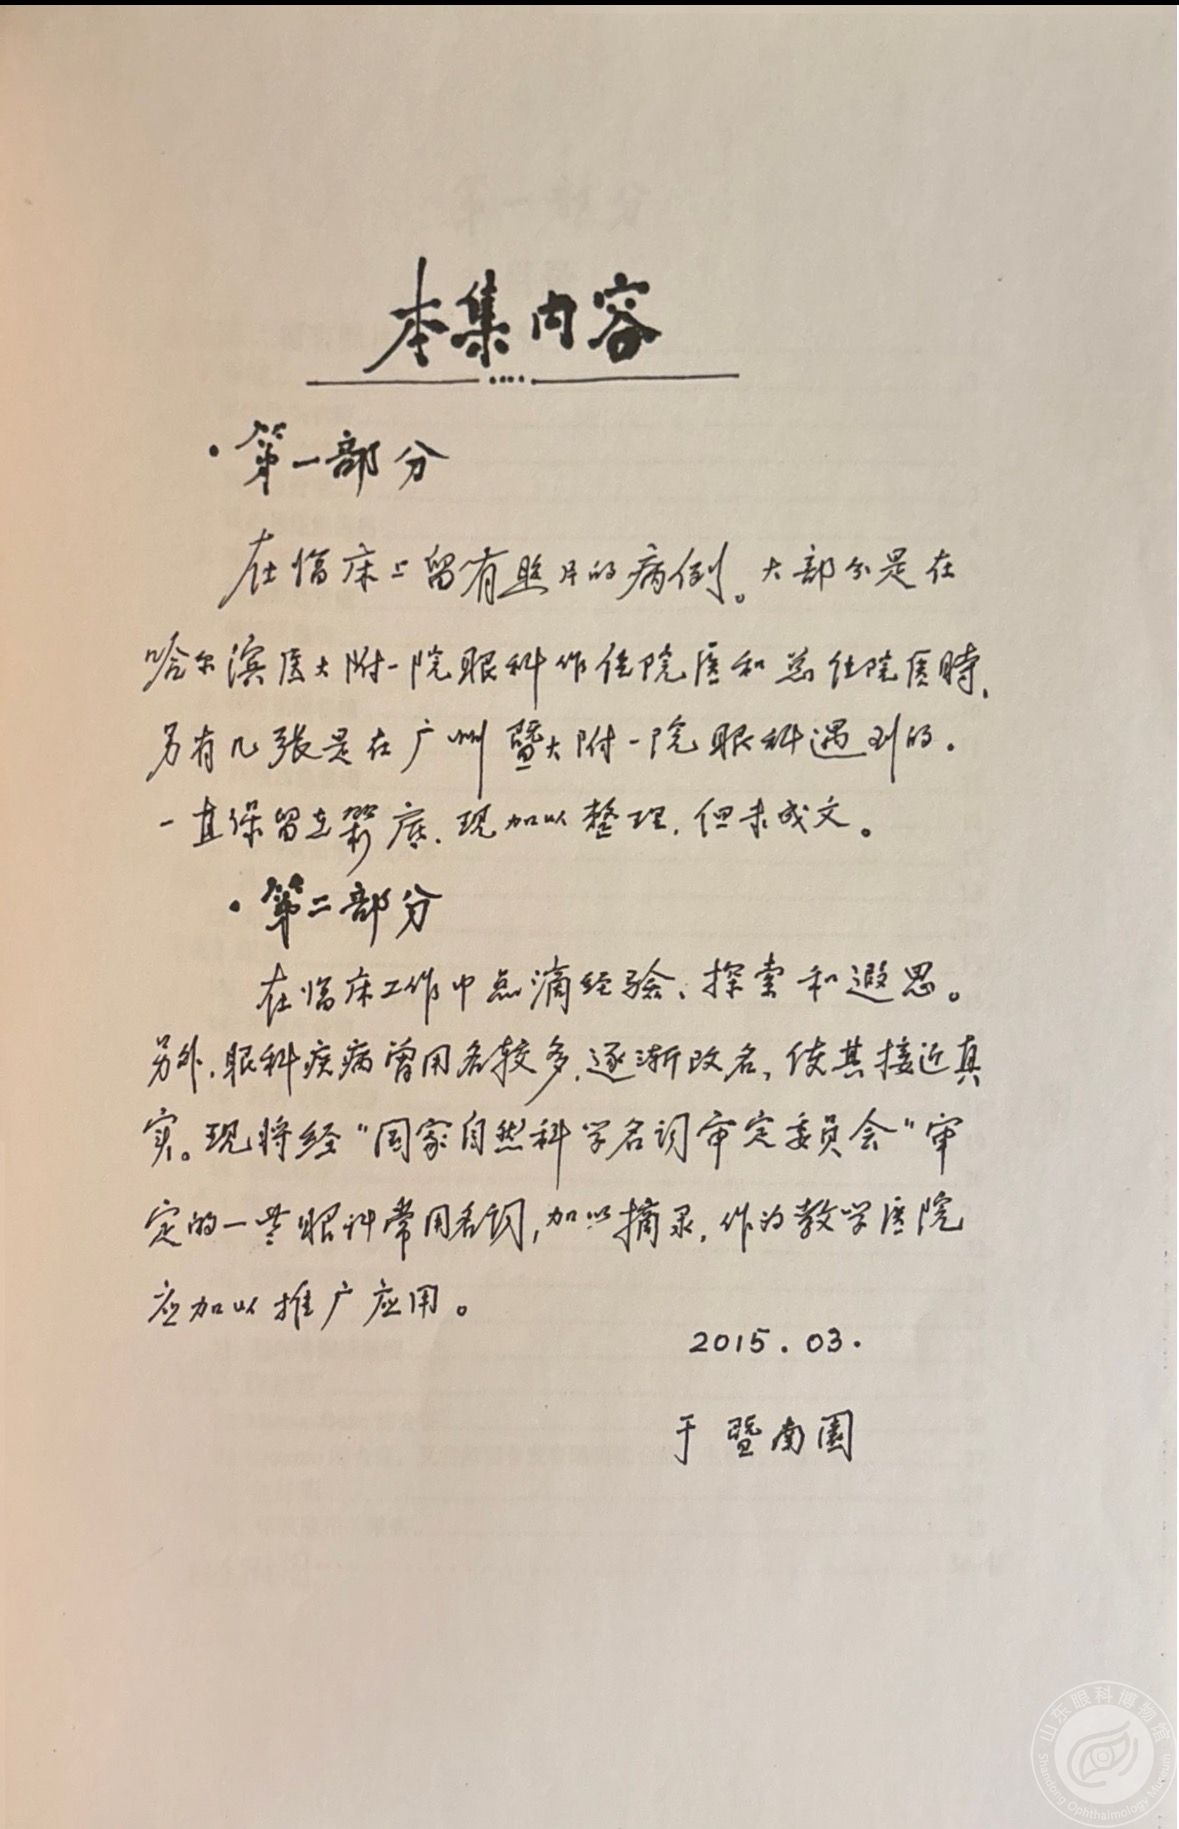 本集内容
·第一部分
在临床上留有照片的病例。大部分是在
哈尔滨医大附一院眼科作住院医和总住院医時,
另有几张是在广州暨大附一院眼科遇到的.
一直保留至底.现加以整理.但未成文。
·第二部分
在临床工作中点滴经验、探索和遐思。
另外.眼科疾病曾用名较多.逐渐改名,使其接近真
实。现将经"国家自然科学名词审定委员会"审
定的一些眼科常用名词,加以摘录.作为教学医院
应加以推广应用。
2015.03.
于暨南園
山东眼科博物馆
Shandong Ophthalmology Museum